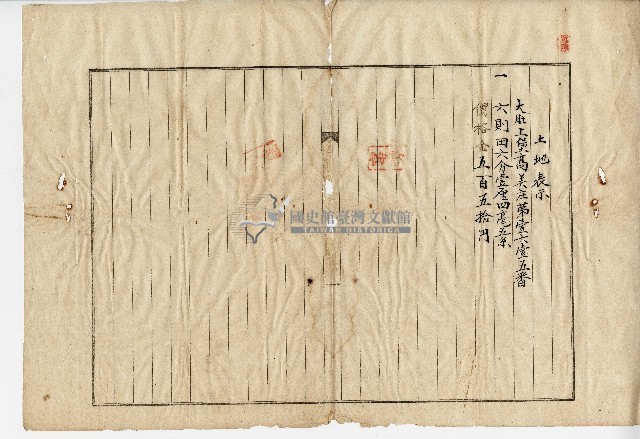 土地表示
大肚上堡高美庄第壹六壹五番
一
六則田六分壹厘四毫五糸
價格金五百五拾円
國史館臺灣文獻館
TAIWAN HISTORICA